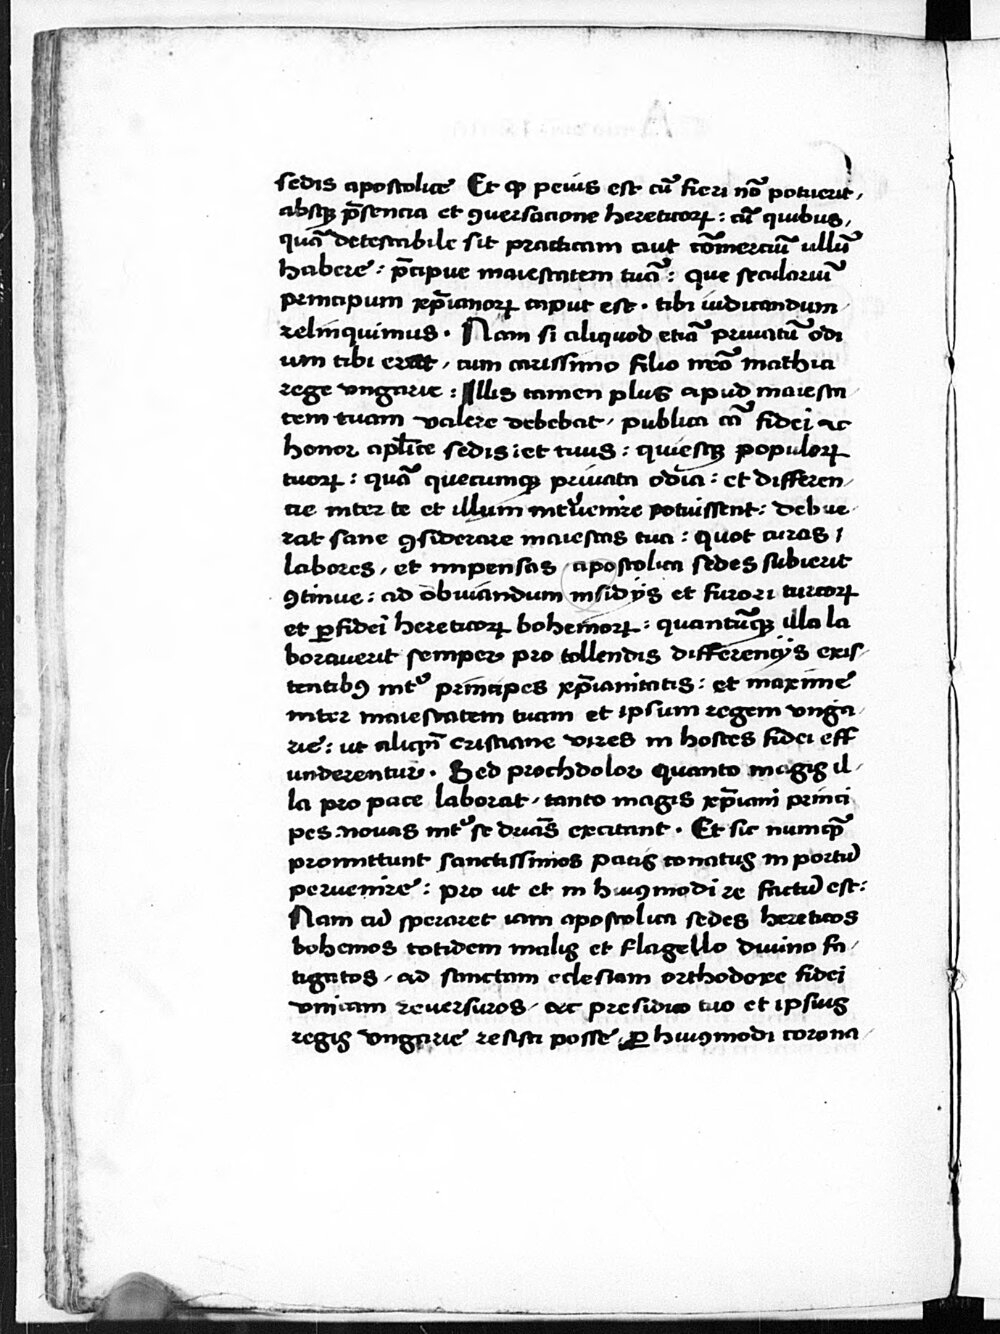 sedis apostolice Et qꝫ peius est cū fieri nō potuerit,
absqꝫ p̄sencia et ꝯuersacione hereticoꝝ : cū quibus,
quā detestabile sit practicam aut cōmerciū ullū
habere : p̄cipue maiestatem tuā : que seculariū
principum xp̄ianoꝝ caput est · tibi iudicandum
relinquimus · Nam si aliquod etiā priuatū odi
um tibi erat , cum carissimo filio nr̄o mathia
rege vngarie : Illis tamen plus apud maiesta
tem tuam valere debebat , publica cā fidei ac
honor ap̄lice sedis : et tuus : quiesqꝫ populoꝝ
tuoꝝ : quā quecumqꝫ priuata odia : et differen
cie inter te et illum int̾uenire potuissent : debue
rat sane ꝯsiderare maiestas tua : quot curas ;
labores , et impensas apostolica sedes subierit
ꝯtinue : ad obuiandum insidijs et furori turcoꝝ
et ꝑfidei hereticoꝝ bohemoꝝ : quantūqꝫ illa la
borauerit semper pro tollendis differencijs exis
tentibꝯ int̾ principes xp̄ianitatis : et maxime
inter maiestatem tuam et ipsum regem vnga
rie : ut aliqn̄ cristiane vires in hostes fidei eff
underentur · Sed prochdolor quanto magis il
la pro pace laborat , tanto magis xp̄iani princi
pes nouas int̾ se discordias excitant · Et sic numqꝫ
promittunt sanctissimos pacis conatus in portū
peruenire : pro ut et in huiꝯmodi re factū est :
Nam cū speraret iam apostolica sedes hereticos
bohemos totidem malis et flagello diuino fa
tigatos , ad sanctam eclesiam orthodoxe fidei
vnicam reuersuros , ac presidio tuo et ipsius
regis vngarie resisti posse , ꝑ huiꝯmodi corona